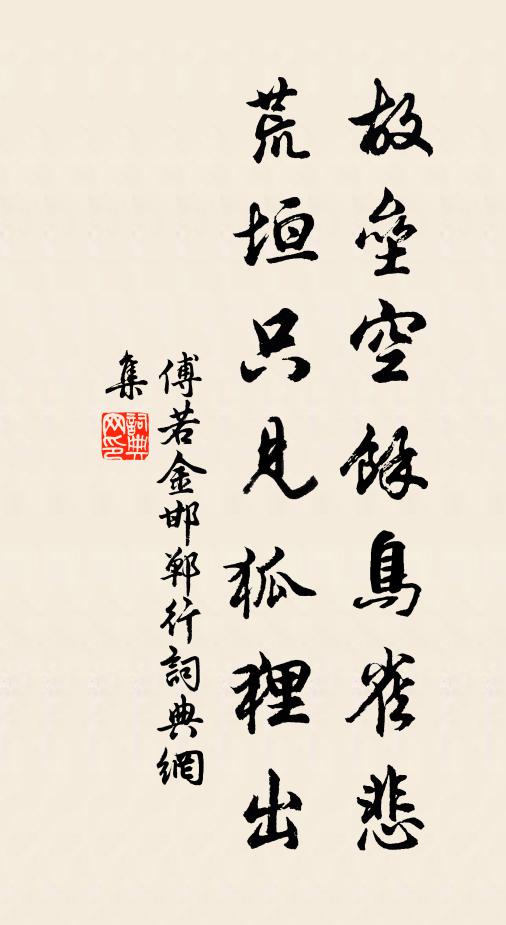 故壘空餘鳥雀悲
荒垣只見狐狸出
傅若金邯鄲行詞典網
集
詞典
网印